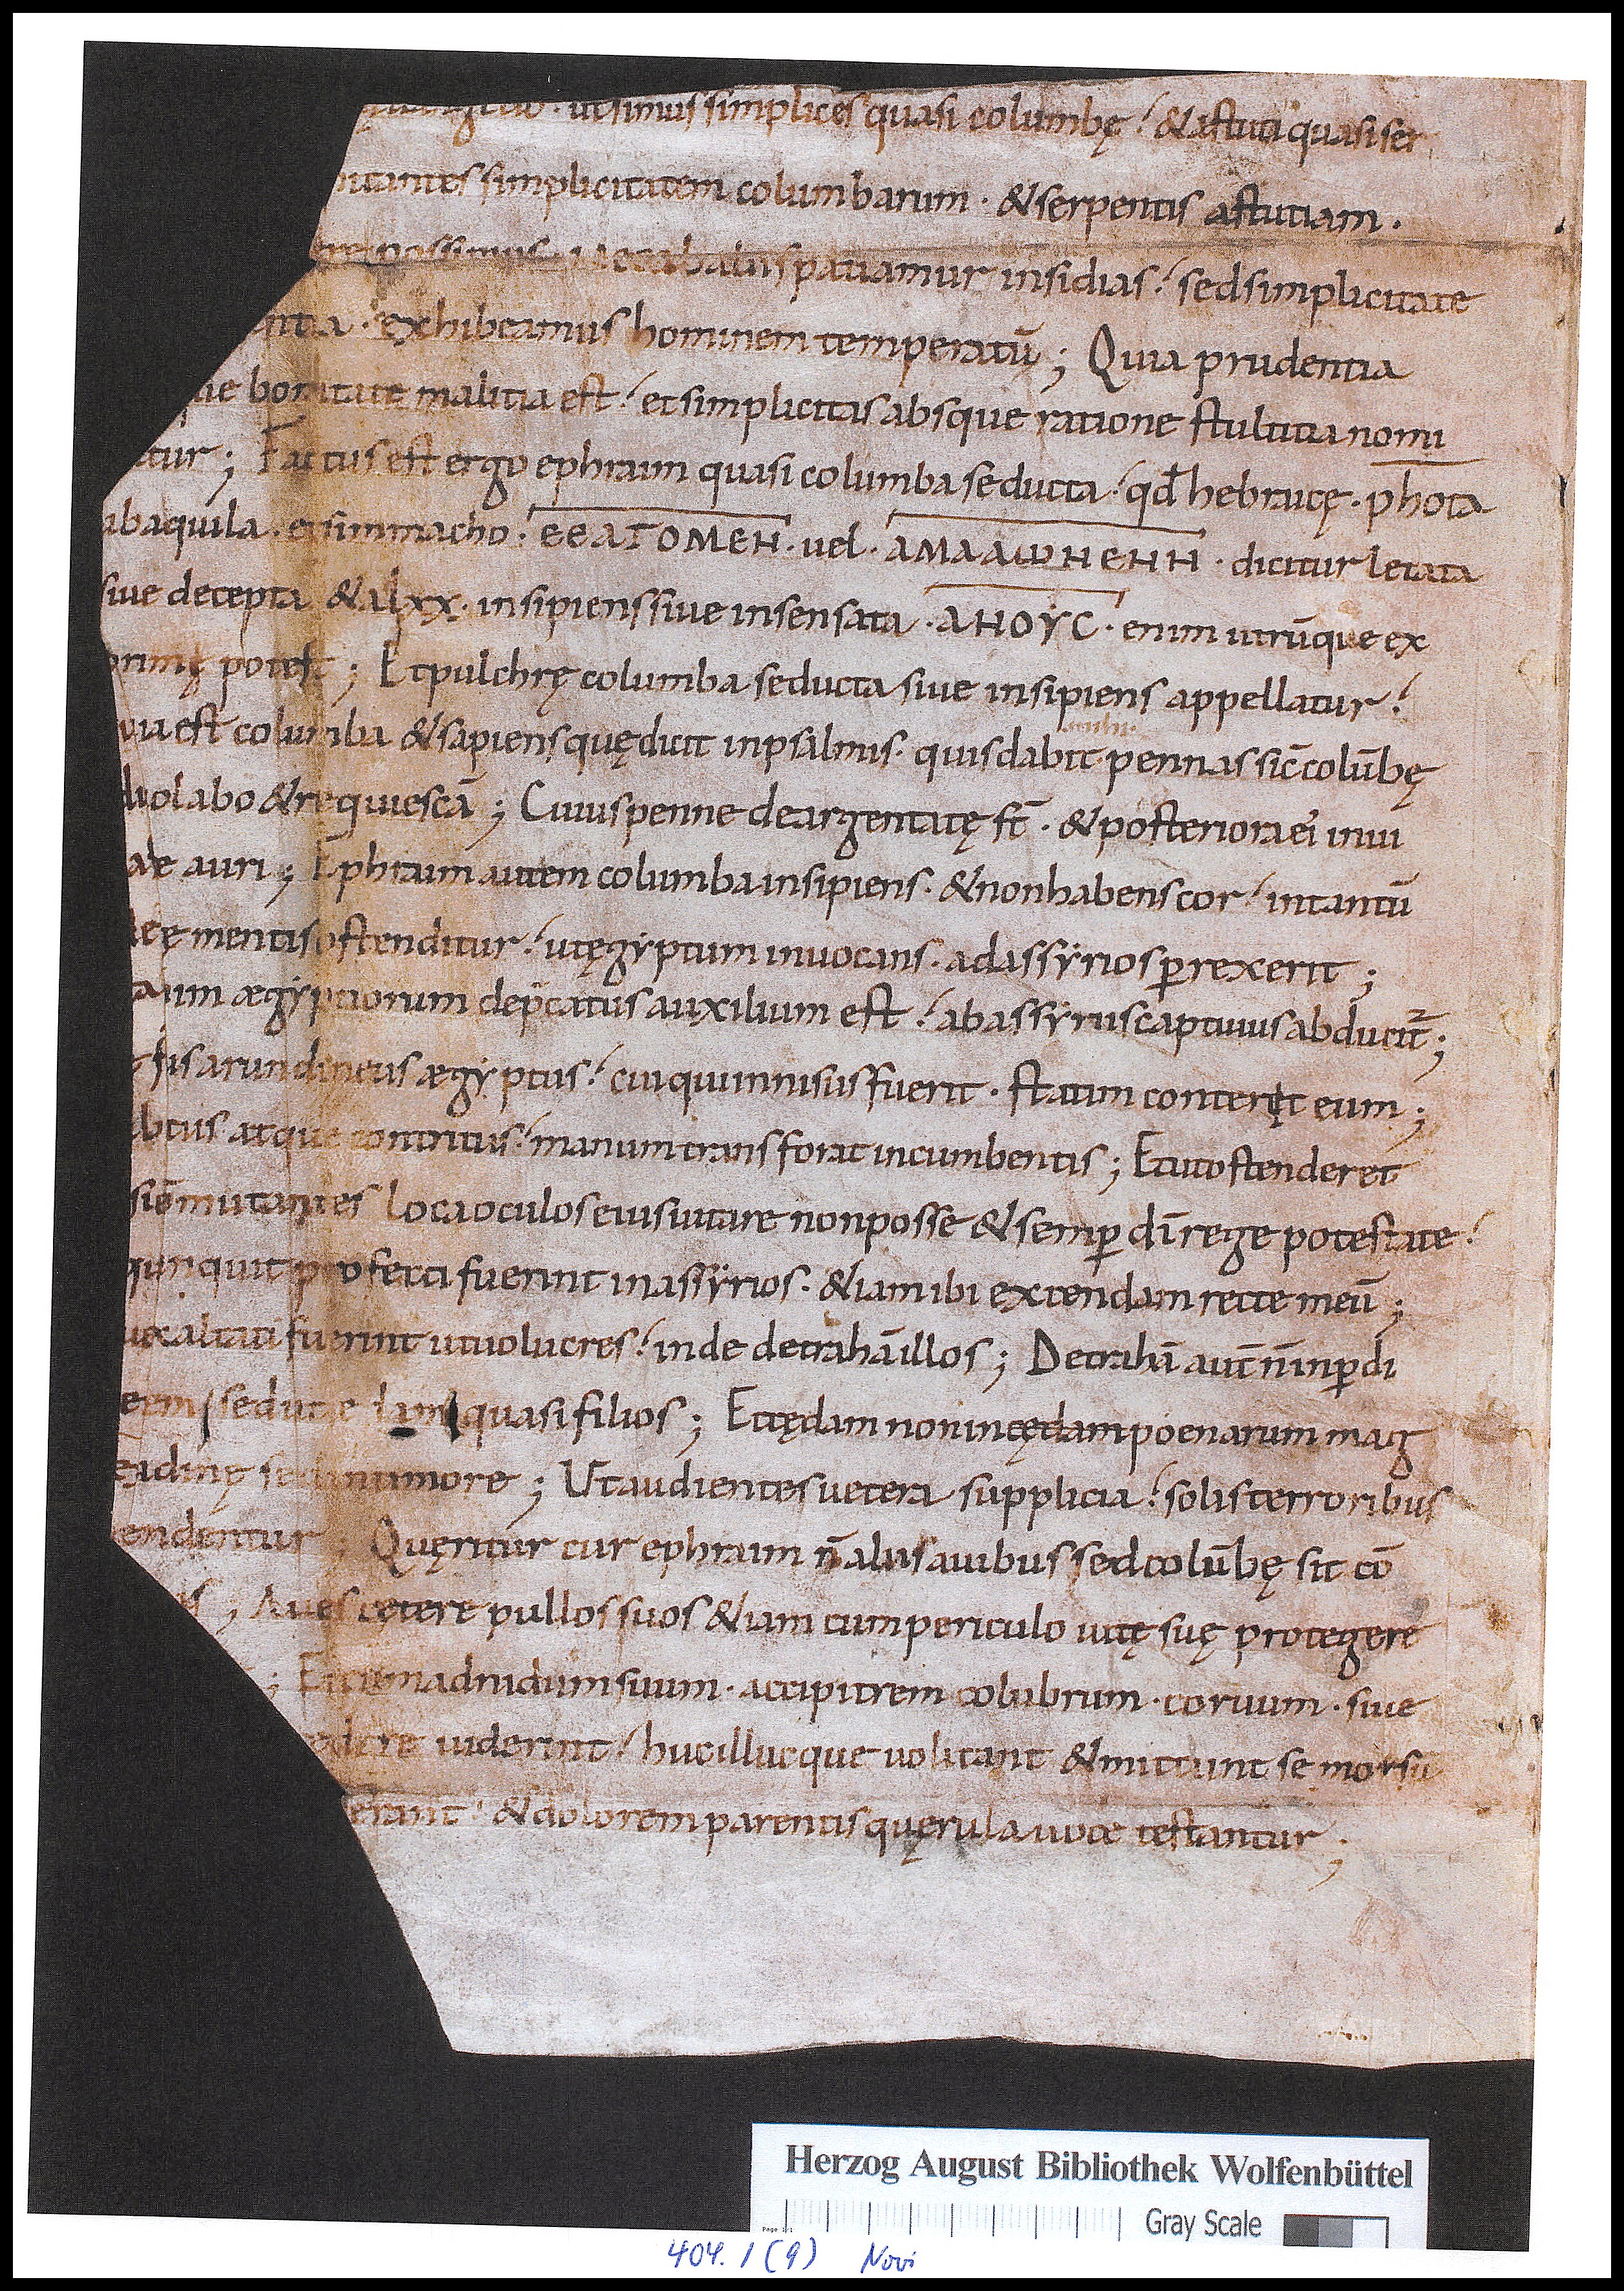 ut simus simplices quasi columbę. & astuti quasi ser
mitantes simplicitatem columbarum · & serpentis astutiam ·
ere possimus · nec ab aliis patiamur insidias. sed simplicitate
entia · exhibeamus hominem temperatū; Quia prudentia
que bonitate malitia est. et simplicitas absque ratione stultitia nomi
atur; Factus est ergo ephraim quasi columba seducta · qđ hebraicę · phota
ab aquila · et simmacho · ΕΘΛΓΟΜΕΗ · uel · ΑΜΑΛΩΗΕΗΗ · dicitur letata
siue decepta & a lxx · insipiens siue insensata · ΑΗΟΥC · enim utrūque ex
primi potest; Et pulchrę columba seducta siue insipiens appellatur.
uia est columba & sapiens quę dicit in psalmis · quis dabit mihi pennas sic̄ colūbę
& uolabo & requiescā; Cuius penne deargentatę st̄ · & posteriora ei' in ui
ae auri; Ephraim autem columba insipiens · & non habens cor. in tantū
ae mentis ostenditur. ut ęgyptum inuocans · ad assyrios perrexerit;
am ægyptiorum dep̄catus auxilium est. ab assyriis captiuus abducit̄;
sis arundineus ægyptus. cui qui innisus fuerit · statim conteret eum;
atque contritus. manum transforat incumbentis; Et ut ostenderet
mutantes loca oculos eius uitare non posse & semper dī rege potestate.
quit profecti fuerint in assyrios · & iam ibi extendam rette meū;
exaltati fuerint ut uolucres. inde detrahā illos; Detrahā aut̄ n̄ in perdi
sed quasi filios; Et cędam non in cędam poenarum mag
tudinę sed in rumore; Ut audientes uetera supplicia. solis terroribus
endentur; Quęritur cur ephraim n̄ aliis auibus sed colūbę sit cō
; Aues cętere pullos suos & iam cum periculo uitę suę protegere
; Et cum ad nidum suum · accipitrem colubrum · coruum · siue
edere uiderint. huc illucque uolitant & mittunt se morsu
erant · & dolorem parentis quęrula uoce testantur;
Herzog August Bibliothek Wolfenbüttel
Gray Scale
404.1 (9) Novi